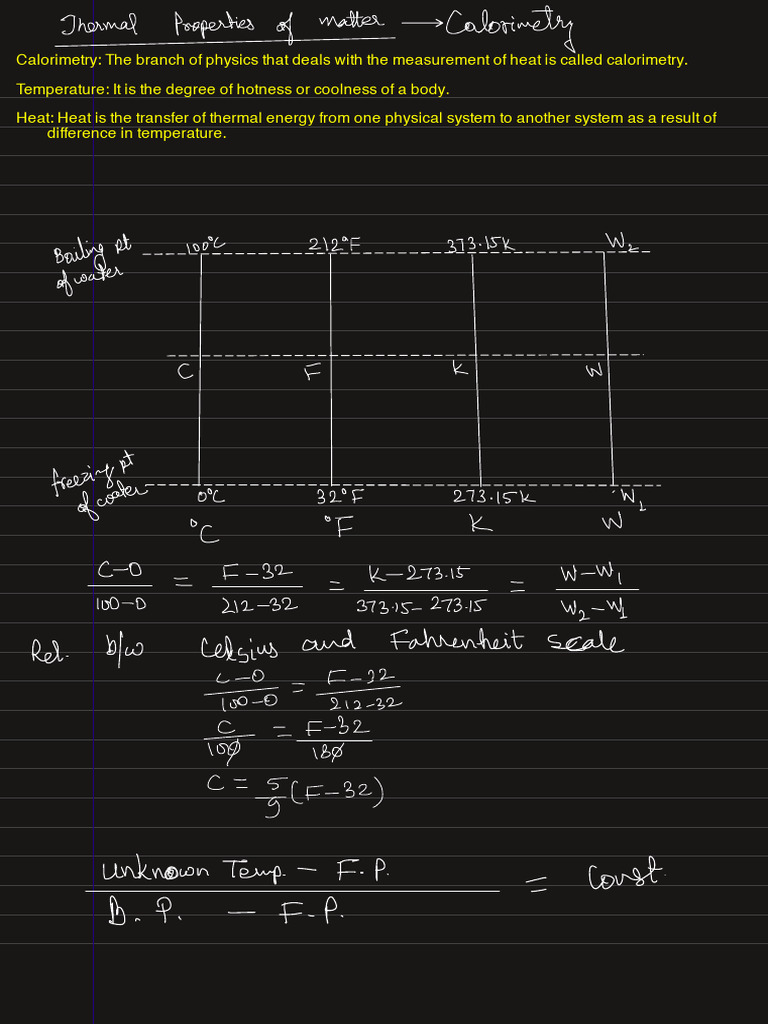 Thermal Properties of matter → Calorimetry
Calorimetry: The branch of physics that deals with the measurement of heat is called calorimetry.
Temperature: It is the degree of hotness or coolness of a body.
Heat: Heat is the transfer of thermal energy from one physical system to another system as a result of
difference in temperature.
Boiling pt
of water
100°C 212°F 373.15K W₂
C F K W
freezing pt
of water
0°C 32°F 273.15K W₂
°C °F K W
C-0 / 100-0 = F-32 / 212-32 = K-273.15 / 373.15-273.15 = W-W₁ / W₂-W₁
Rel. b/w Celsius and Fahrenheit scale
C-0 / 100-0 = F-32 / 212-32
C / 100 = F-32 / 180
C = 5/9 (F-32)
Unknown Temp. - F.P. / B.P. - F.P. = Const.